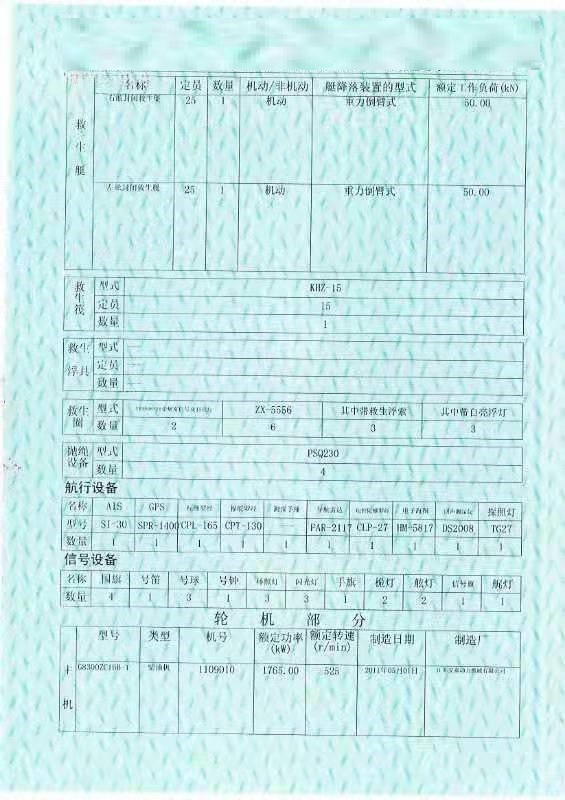 名称 定员 数量 机动/非机动 艇降落装置的型式 额定工作负荷(kN)
救生艇
右舷封闭救生艇 25 1 机动 重力倒臂式 50.00
左舷封闭救生艇 25 1 机动 重力倒臂式 50.00
救生筏
型式 KHZ-15
定员 15
数量 1
救生浮具
型式 —
定员 —
数量 —
救生圈
型式 ZX-5556 其中带救生浮索 其中带自亮浮灯
数量 2 6 3 3
抛绳设备
型式 PSQ230
数量 4
航行设备
名称 AIS GPS 导航雷达 电子海图 探照灯
型号 SI-30 SPR-1400 CPL-165 CPT-130 — FAR-2117 CLP-27 HM-5817 DS2008 TG27
数量 1 1 1 1 1 1 1 1 1 1
信号设备
名称 国旗 号笛 号球 号钟 环照灯 闪光灯 手旗 桅灯 舷灯 信号旗 艉灯
数量 4 1 3 1 3 3 1 2 2 1 1
轮机部分
型号 类型 机号 额定功率(kW) 额定转速(r/min) 制造日期 制造厂
主机
G8300ZC16B-1 柴油机 1109010 1765.00 525 2011年05月01日